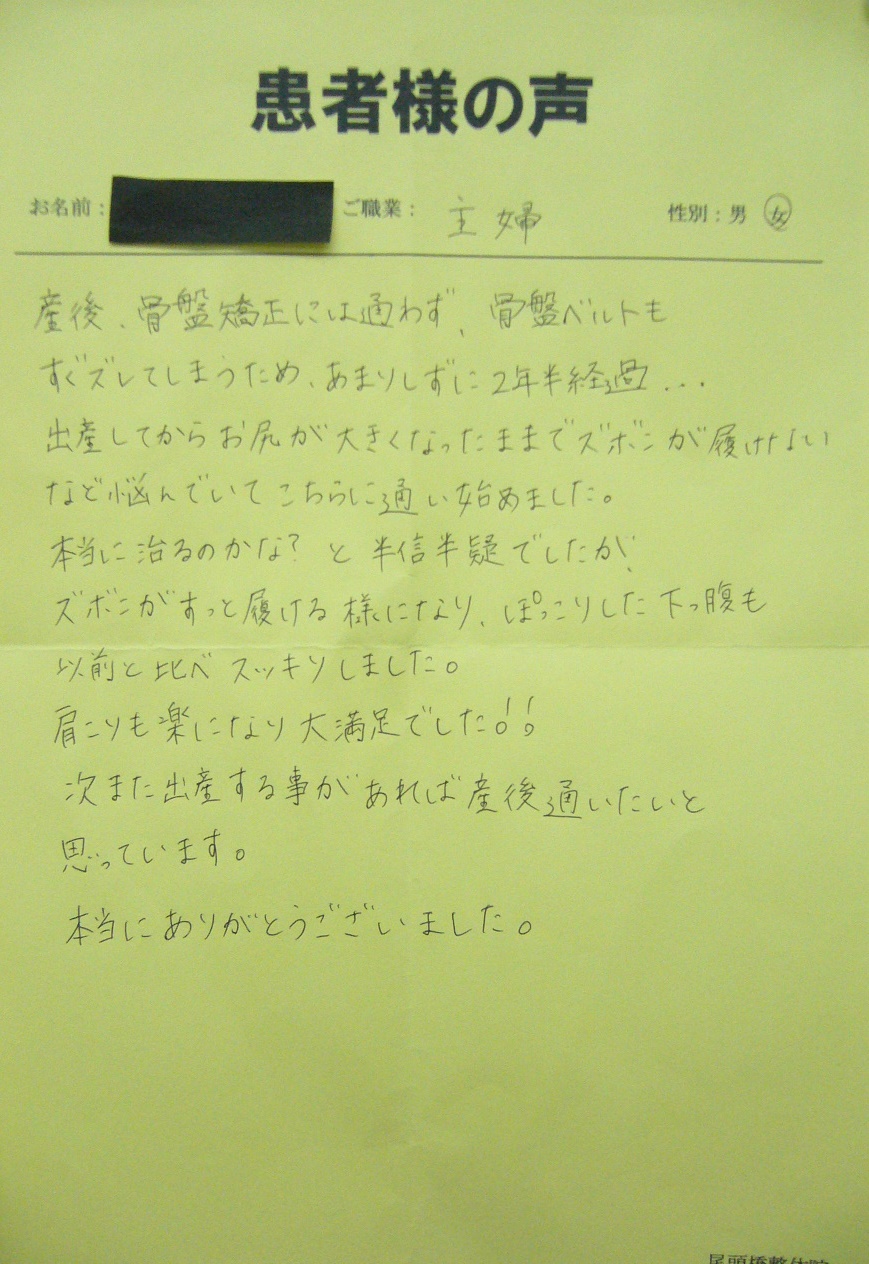 患者様の声
お名前： ご職業： 主婦 性別：男 女
産後、骨盤矯正には通わず、骨盤ベルトも
すぐズレてしまうため、あまりしずに2年半経過...
出産してからお尻が大きくなったままでズボンが履けない
など悩んでいてこちらに通い始めました。
本当に治るのかな？と半信半疑でしたが、
ズボンがすっと履ける様になり、ぽっこりした下っ腹も
以前と比べスッキリしました。
肩こりも楽になり大満足でした！！
次また出産する事があれば産後通いたいと
思っています。
本当にありがとうございました。
尾頭橋整体院